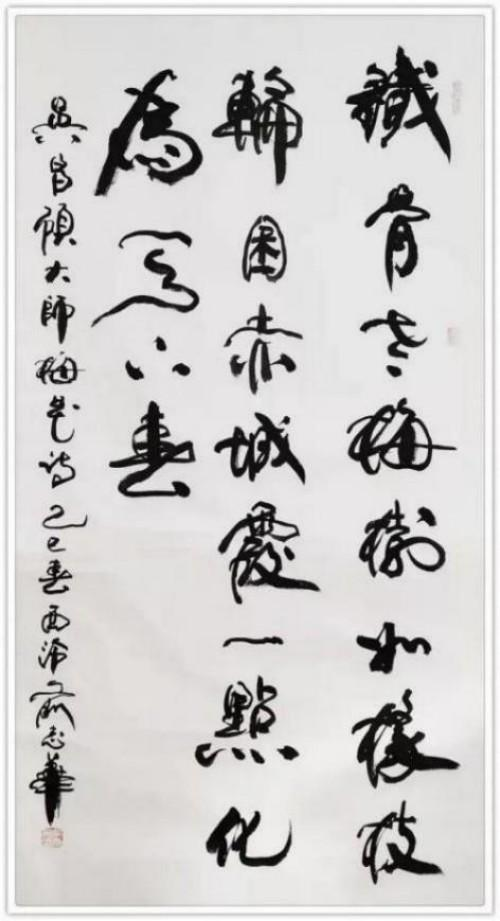 鐵骨老梅樹如椽枝
輪囷赤城霞一點化
為天下春
吳昌碩大師梅花詩乙巳春西泠俞志華